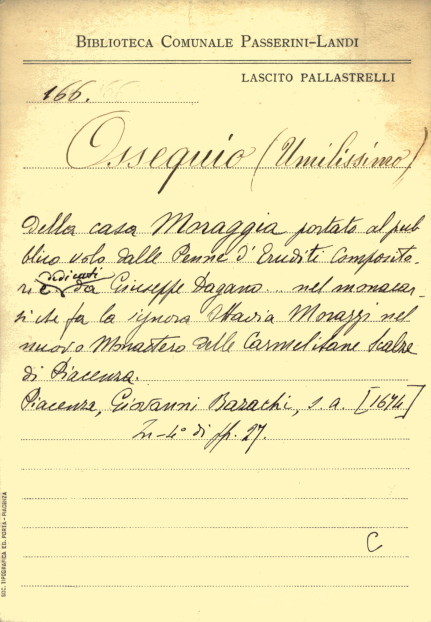 BIBLIOTECA COMUNALE PASSERINI-LANDI
LASCITO PALLASTRELLI
166.
Ossequio (Umilissimo)
Della casa Moraggia portato al pub
blico volo dalle Penne d'Eruditi Composito-
ri dedicati da Giuseppe Pagano... nel monacar-
si che fa la signora Maria Morazzi nel
nuovo Monastero delle Carmelitane Scalze
di Piacenza.
Piacenza, Giovanni Bazachi, s.a. [1674]
In-4° di ff. 27.
C
SOC. TIPOGRAFICA ED. PORTA - PIACENZA